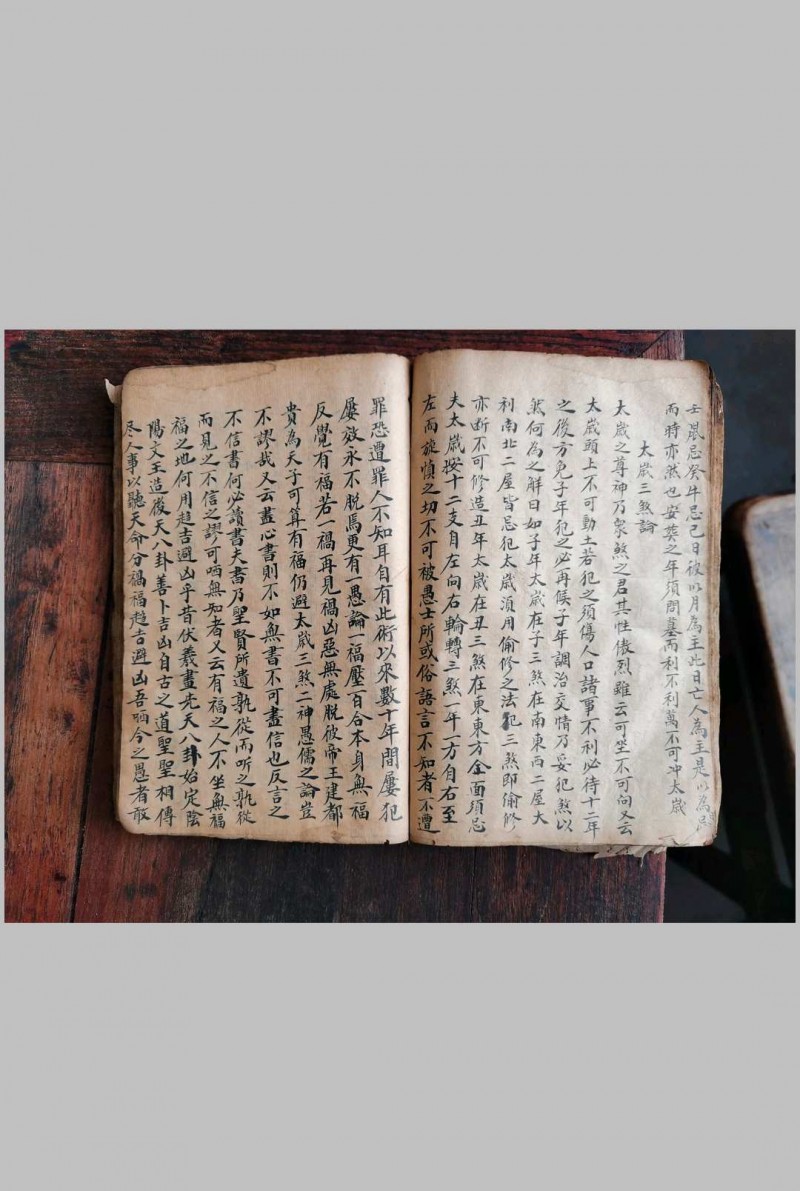 壬鼠忌癸牛忌己日彼以月為主此日亡人為主是以為忌
而時亦然也安葬之年須問墓而利不利萬不可冲太歲
太歲三煞論
太歲之尊神乃衆煞之君其性傲烈雖云可坐不可向又云
太歲頭上不可動土若犯之須傷人口諸事不利必待十二年
之後方免子年犯之必再候子年調治交情乃妥犯煞以
然何為之解曰如子年太歲在子三煞在南東西二屋大
利南北二屋皆忌犯太歲須用偷修之法犯三煞即偷修
亦斷不可修造丑年太歲在丑三煞在東東方全面須忌
夫太歲按十二支自左向右輪轉三煞一年一方自右至
左而旋慎之切不可被愚士所或俗語言不知者不遭
罪恐遭罪人不知耳自有此術以來數十年間屢犯
屢效永不脫焉更有一愚論一福壓百合本身無福
反覺有福若一禍再見禍凶惡無處脫彼帝王建都
貴為天子可算有福仍避太歲三煞二神愚儒之論豈
不謬哉又云盡心書則不如無書不可盡信也反言之
不信書何必讀書夫書乃聖賢所遺孰從而听之孰從
而見之不信之謬可哂無知者又云有福之人不坐無福
福之地何用趋吉避凶乎昔伏羲畫先天八卦始定陰
陽文王造後天八卦善卜吉凶自古之道聖聖相傳
尽人事以聽天命分禍福趋吉避凶吾哂今之愚者敢